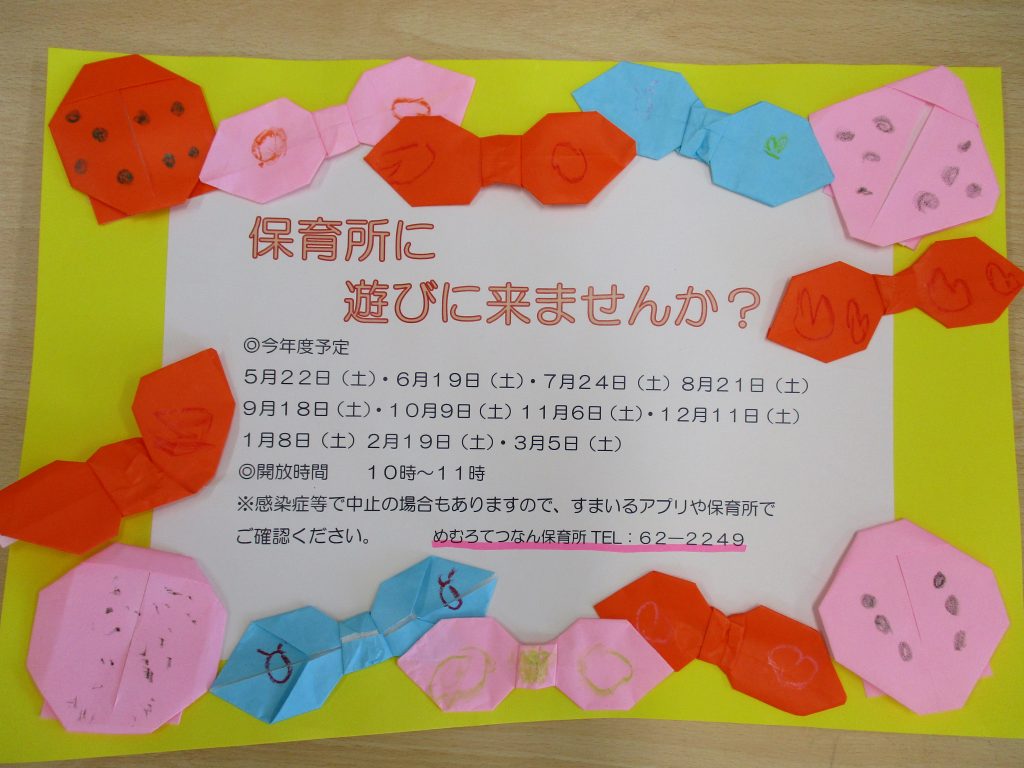 保育所に
遊びに来ませんか？
◎今年度予定
５月２２日（土）・６月１９日（土）・７月２４日（土）８月２１日（土）
９月１８日（土）・１０月９日（土）１１月６日（土）・１２月１１日（土）
１月８日（土）２月１９日（土）・３月５日（土）
◎開放時間　　１０時～１１時
※感染症等で中止の場合もありますので、すまいるアプリや保育所で
ご確認ください。　　めむろてつなん保育所 TEL：６２－２２４９